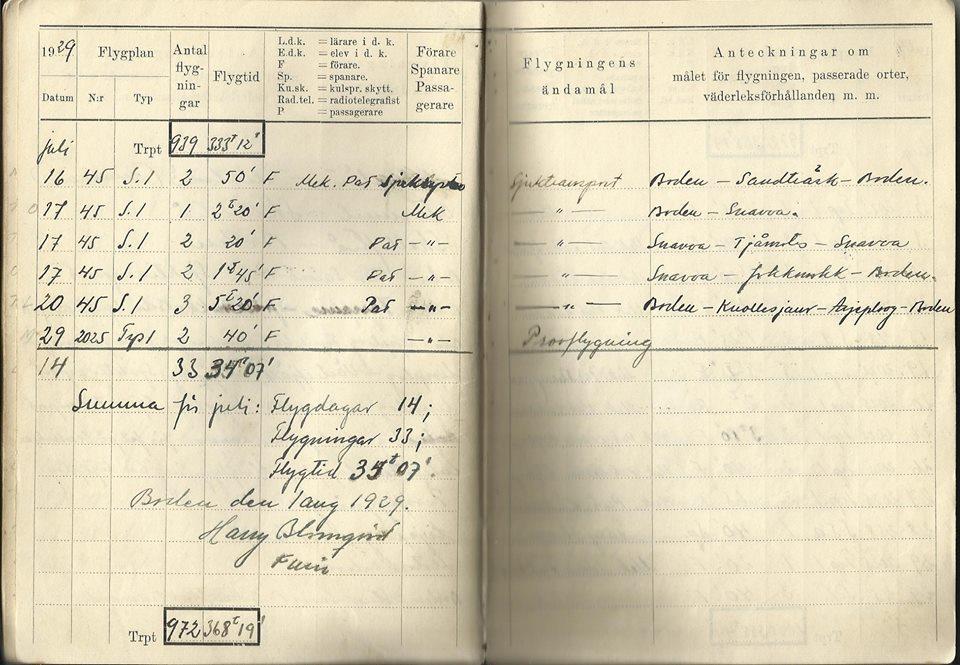 1929 Flygplan Antal flyg-nin-gar Flygtid L.d.k. = lärare i d. k. Förare Flygningens ändamål Anteckningar om
E.d.k. = elev i d. k. Spanare målet för flygningen, passerade orter,
F = förare. Passa-gerare väderleksförhållanden m. m.
Sp. = spanare.
Datum N:r Typ Ku.sk. = kulspr. skytt.
Rad.tel. = radiotelegrafist
P = passagerare
juli Trpt 939 333t 12'
16 45 S.1 2 50' F Mek. Pat Sjuktransport Boden – Sandträsk – Boden.
17 45 S.1 1 2t 20' F Mek — " — Boden – Snavva.
17 45 S.1 2 20' F Pat – " – — " — Snavva – Tjåmotis – Snavva
17 45 S.1 2 1t 45' F Pat – " – — " — Snavva – Jokkmokk – Boden.
20 45 S.1 3 5t 20' F Pat – " – — " — Boden – – Arjeplog – Boden
29 2025 Typ1 2 40' F – " – Provflygning
14 33 34t 07'
Summa för juli: Flygdagar 14;
Flygningar 33;
Flygtid 35t 07'.
Boden den 1 aug 1929.
Harry Blomqvist
Trpt 972 368t 19'